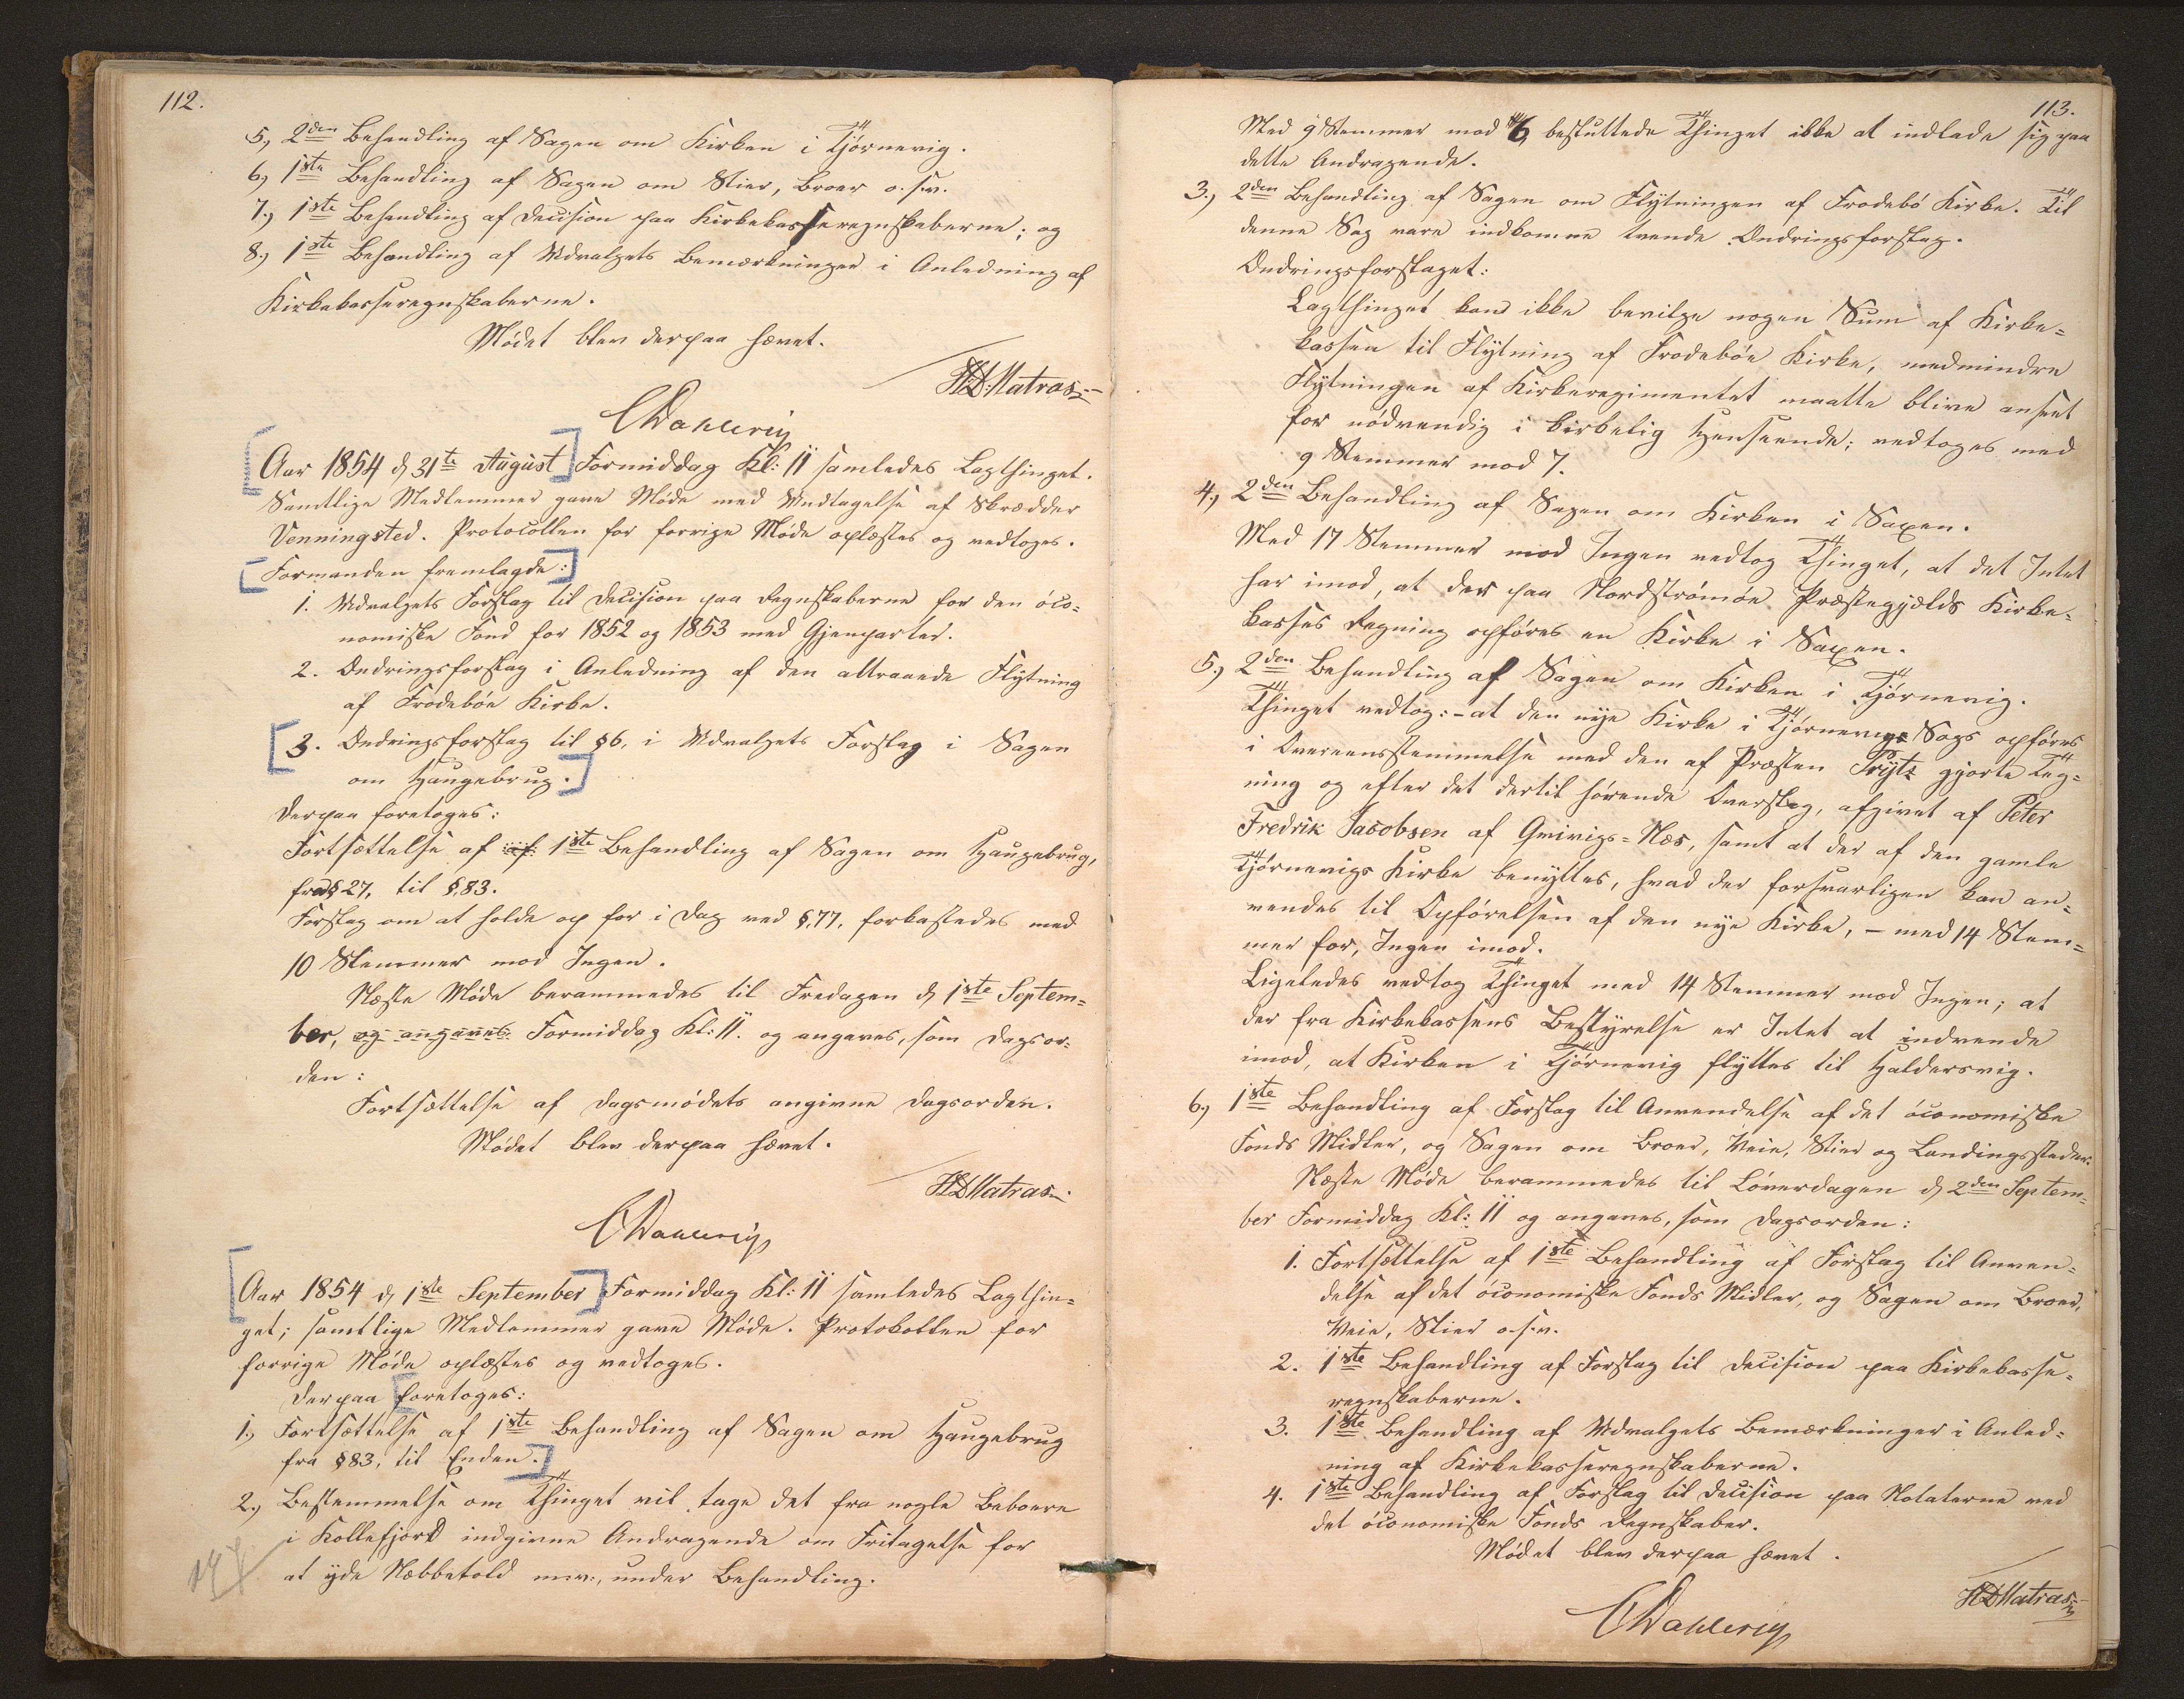 112.
5., 2den Behandling af Sagen om Kirken i Tjørnevig.
6., 1ste Behandling af Sagen om Stier, Broer o. s. v.
7., 1ste Behandling af Decision paa Kirkekasseregnskaberne; og
8., 1ste Behandling af Udvalgets Bemærkninger i Anledning af
Kirkekasseregnskaberne.
Mødet blev derpaa hævet.
HDMatras
CDahlerup
Aar 1854 d. 31te August Formiddag Kl: 11 samledes Lagthinget.
Samtlige Medlemmer gave Møde med Undtagelse af Skrædder
Venningsted. Protocollen for forrige Møde oplæstes og vedtoges.
Formanden fremlagde:
1. Udvalgets Forslag til Decision paa Regnskaberne for den øco-
nomiske Fond for 1852 og 1853 med Gjenparter.
2. Ændringsforslag i Anledning af den attraaede Flytning
af Frodebøe Kirke.
3. Ændringsforslag til §6, i Udvalgets Forslag i Sagen
om Haugebrug.
Derpaa foretoges:
Fortsættelse af af 1ste Behandling af Sagen om Haugebrug,
fra §27, til §.83.
Forslag om at holde op for i Dag ved §.77, forkastedes med
10 Stemmer mod Ingen.
Næste Møde berammedes til Fredagen d. 1ste Septem-
ber, og angaves Formiddag Kl: 11. og angaves, som Dagsor-
den:
Fortsættelse af Dagsmødets angivne Dagsorden.
Mødet blev derpaa hævet.
HDMatras
CDahlerup
Aar 1854 d. 1ste September Formiddag Kl: 11 samledes Lagthin-
get; samtlige Medlemmer gave Møde. Protokollen for
forrige Møde oplæstes og vedtoges.
Derpaa foretoges:
1., Fortsættelse af 1ste Behandling af Sagen om Haugebrug
fra §83, til Enden.
2., Bestemmelse om Thinget vil tage det fra nogle Beboere
i Kollefjord indgivne Andragende om Fritagelse for
at yde Næbbetold m.v., under Behandling.
113.
Med 9 Stemmer mod 6, besluttede Thinget ikke at indlade sig paa
dette Andragende.
3., 2den Behandling af Sagen om Flytningen af Frodebø Kirke. Til
denne Sag vare indkomne tvende Ændringsforslag.
Ændringsforslaget:
Lagthinget kan ikke bevilge nogen Sum af Kirke-
kassen til Flytning af Frodebøe Kirke, medmindre
Flytningen af Kirkeregimentet maatte blive anseet
for nødvendig i kirkelig Henseende; vedtoges med
9 Stemmer mod 7.
4., 2den Behandling af Sagen om Kirken i Saxen.
Med 17 Stemmer mod Ingen vedtog Thinget, at det Intet
har imod, at der paa Nordstrømøe Præstegjælds Kirke-
kasses Regning opføres en Kirke i Saxen.
5., 2den Behandling af Sagen om Kirken i Tjørnevig.
Thinget vedtog: - at den nye Kirke i Tjørnevigs Sogn opføres
i Overeensstemmelse med den af Præsten Prytz gjorte Teg-
ning og efter det dertil hørende Overslag, afgivet af Peter
Fredrik Jacobsen af Qvivigs-Næs, samt at der af den gamle
Tjørnevigs Kirke benyttes, hvad der forsvarligen kan an-
vendes til Opførelsen af den nye Kirke, - med 14 Stem-
mer for, Ingen imod.
Ligeledes vedtog Thinget med 14 Stemmer mod Ingen; at
der fra Kirkekassens Bestyrelse er Intet at indvende
imod, at Kirken i Tjørnevig flyttes til Haldersvig.
6., 1ste Behandling af Forslag til Anvendelse af det øconomiske
Fonds Midler, og Sagen om Broer, Veie, Stier og Landingssteder.
Næste Møde berammedes til Løverdagen d. 2den Septem-
ber Formiddag Kl: 11 og angaves, som Dagsorden:
1. Fortsættelse af 1ste Behandling af Forslag til Anven-
delse af det øconomiske Fonds Midler, og Sagen om Broer,
Veie, Stier o.s.v.
2. 1ste Behandling af Forslag til Decision paa Kirkekasse-
regnskaberne.
3. 1ste Behandling af Udvalgets Bemærkninger i Anled-
ning af Kirkekasseregnskaberne.
4. 1ste Behandling af Forslag til Decision paa Notaterne ved
det øconomiske Fonds Regnskaber.
Mødet blev derpaa hævet.
HDMatras
CDahlerup